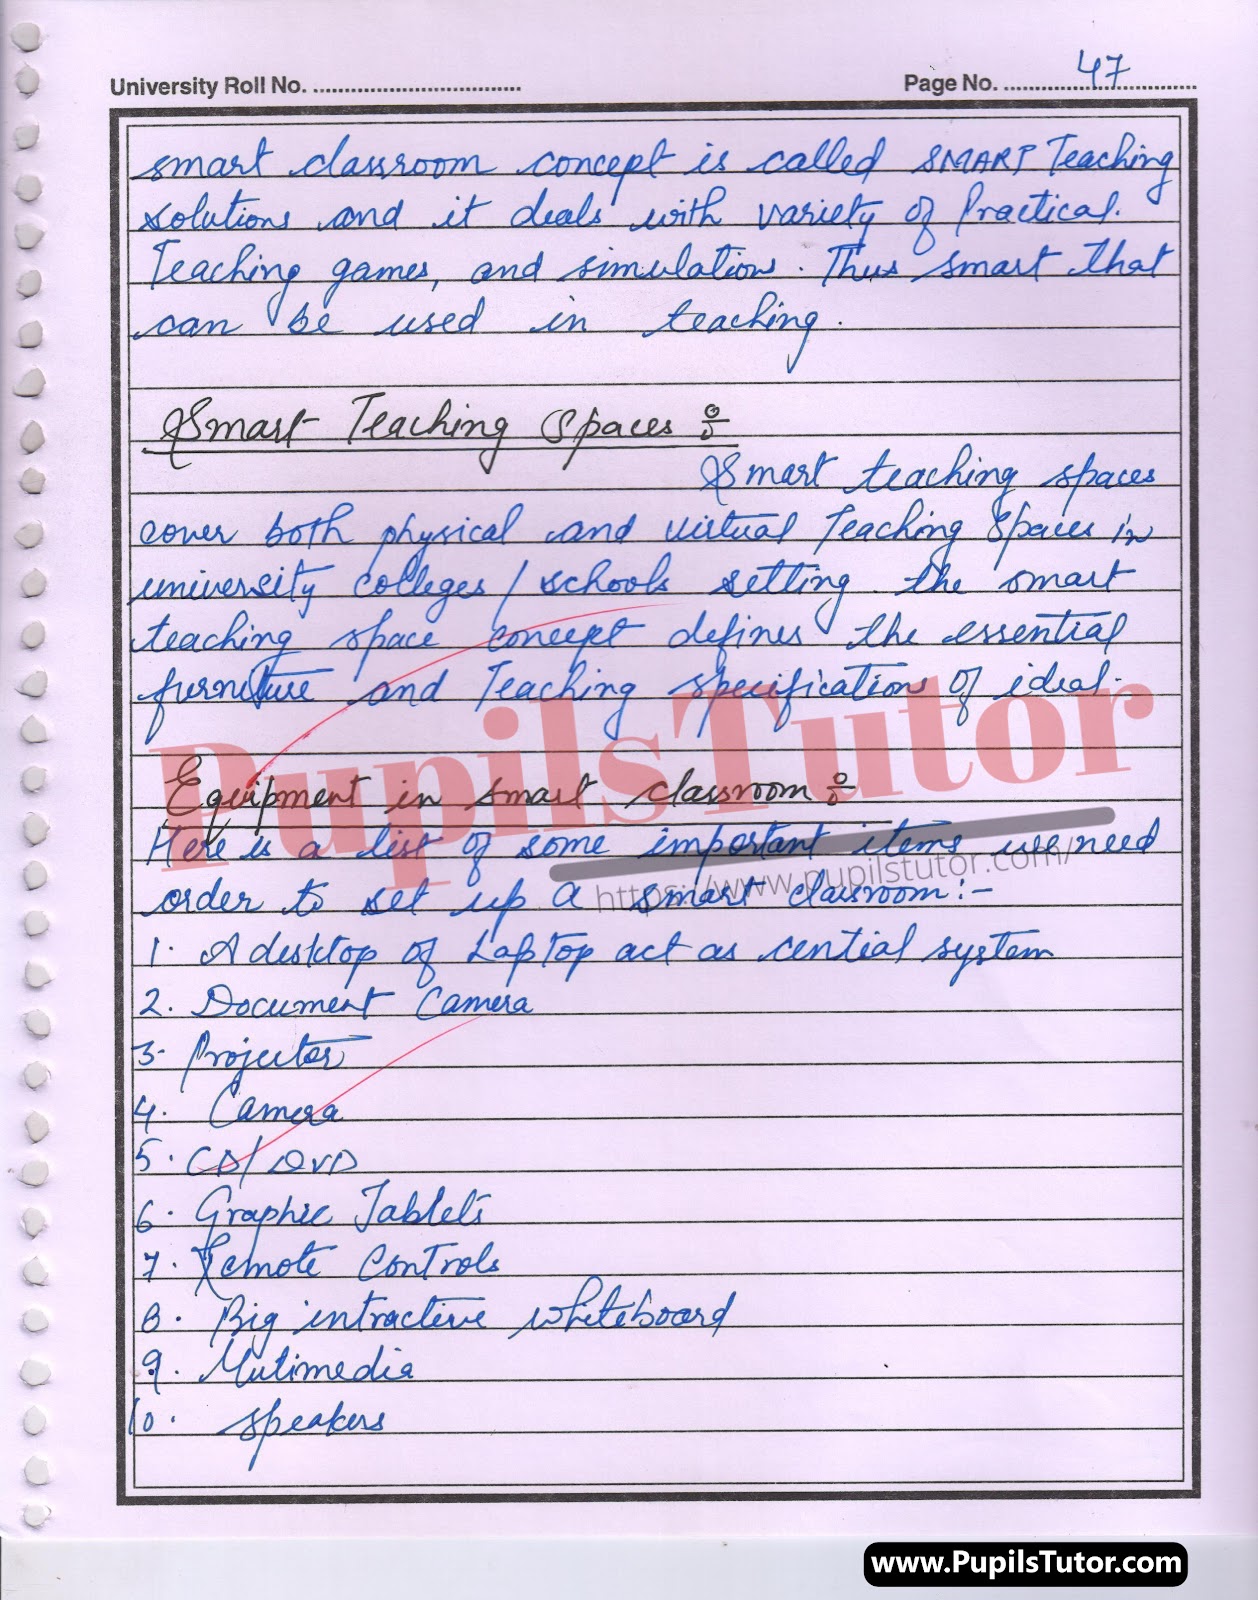 University Roll No. ................................ Page No. ....47....
smart classroom concept is called SMART Teaching
solutions and it deals with variety of Practical.
Teaching games, and simulation. Thus smart that
can be used in teaching.
Smart Teaching Spaces :-
Smart teaching spaces
cover both physical and virtual Teaching Spaces in
university colleges/schools setting. the smart
teaching space concept defines the essential
furniture and Teaching specifications of ideal.
PupilsTutor
Equipment in smart classroom :-
Here is a list of some important items we need
https://www.pupilstutor.com/
order to set up a smart classroom:-
1. A desktop of Laptop act as cential system
2. Document Camera
3. Projector
4. Camera
5. CD/DVD
6. Graphic Tablets
7. Remote Controls
8. Big intractive whiteboard
9. Mutimedia
10. speakers
www.PupilsTutor.com